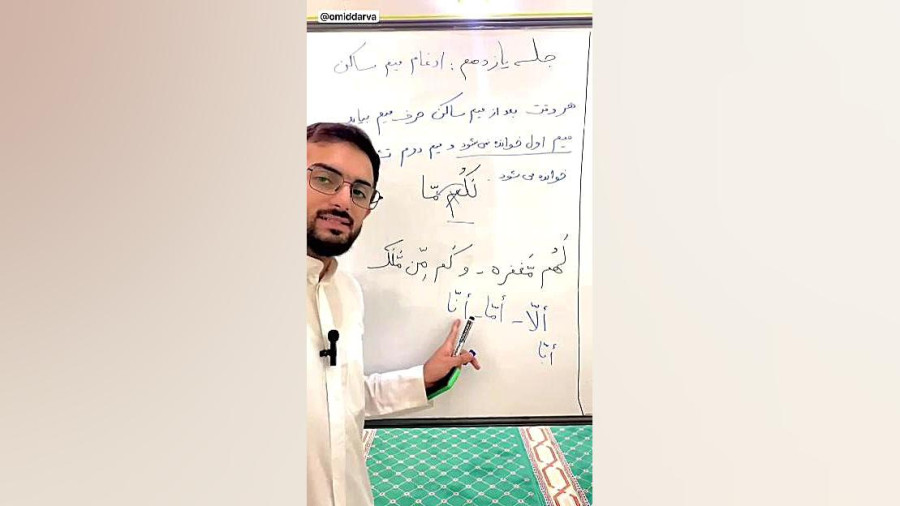 @omiddarva
جلسه یازدهم : ادغام میم ساکن
هر وقت بعد از میم ساکن حرف میم بیاید
میم اول خوانده نمی‌شود و میم دوم
خوانده می‌شود .
لَکُم مّا
لَهُم مَّغفره - و کَم مِّن مَّلَک
ألّا - أمّا - أنّا
أبّا